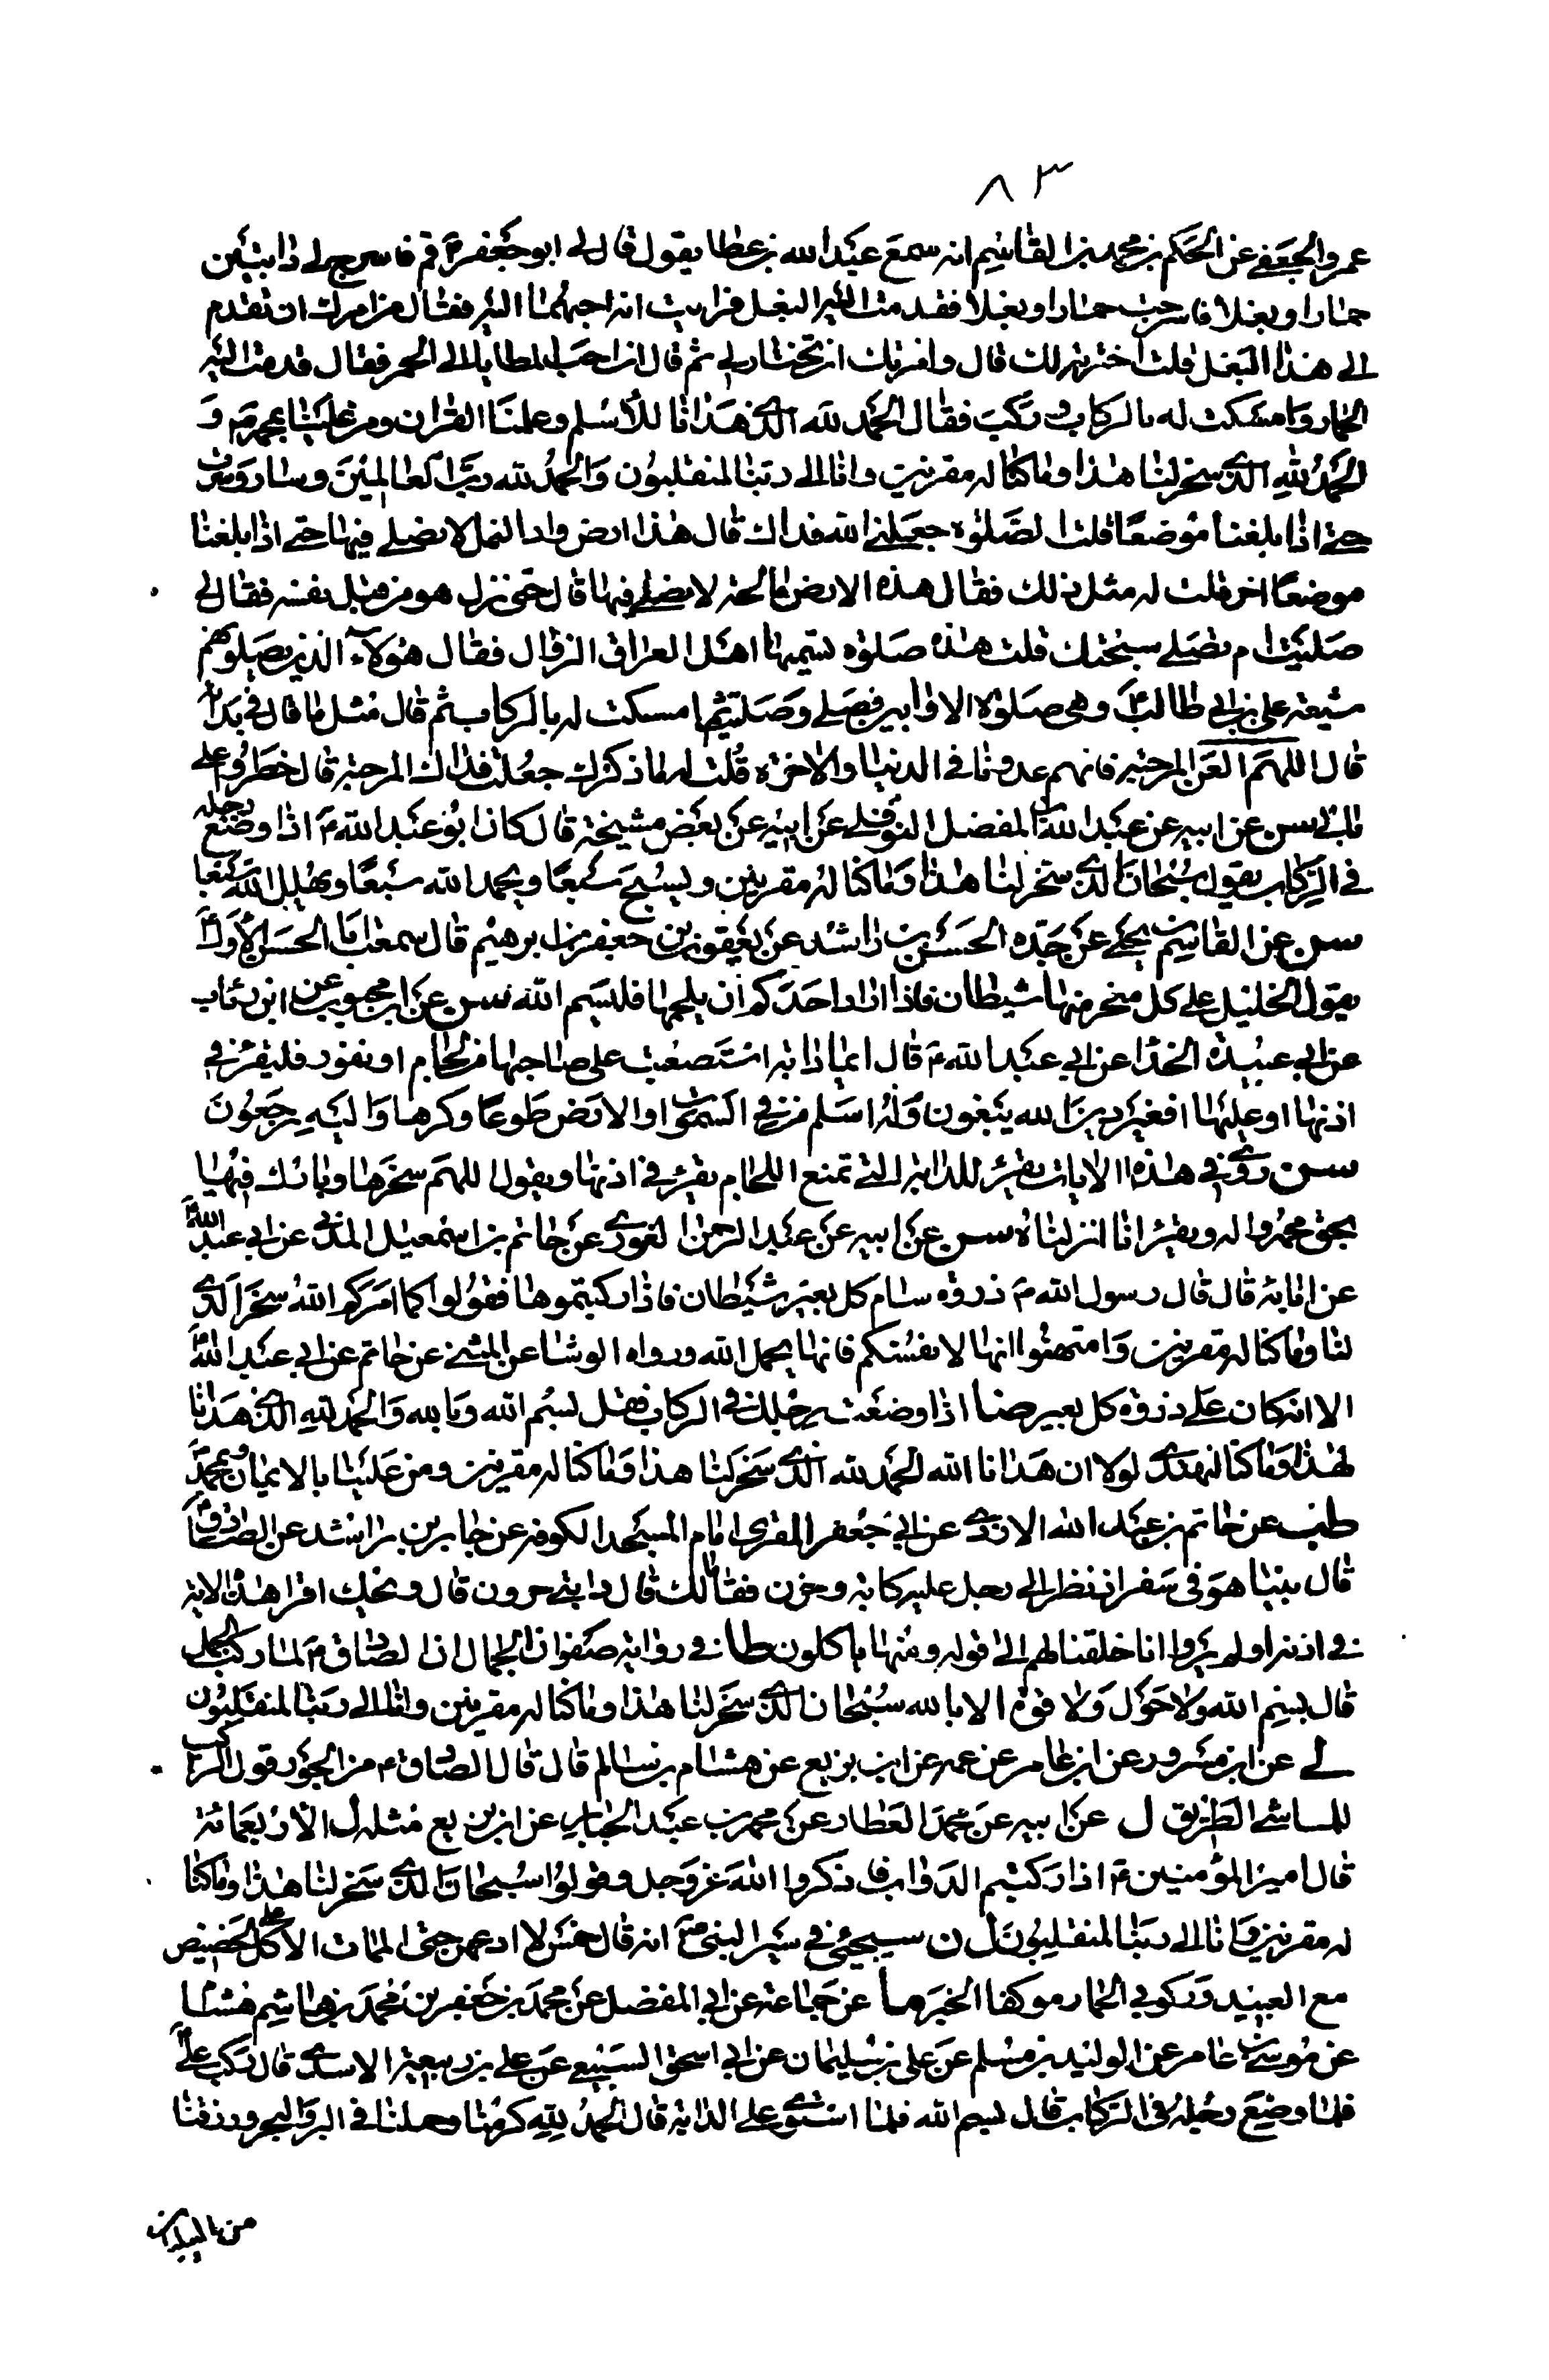 ٨٣
عمرو الجعفي عن الحكم بن محمد بن القاسم انه سمع عبد الله بن عطا يقول قال لي ابو جعفر ع قم فاسرج لي دابتين
حمارا وبغلا فاسرجت حمارا وبغلا فقدمت اليه البغل فرايت انه احبهما اليه فقال من امرك ان تقدم
الي هذا البغل قلت اخترته لك قال وامرتك ان تختار لي ثم قال ان احب المطايا الي الحمر فقال قدمت اليه
الحمار وامسكت له بالركاب و ركب فقال الحمد لله الذي هدانا للاسلم وعلمنا القران ومن علينا بمحمد ص و
الحمد لله الذي سخر لنا هذا وما كنا له مقرنين وانا الى ربنا لمنقلبون والحمد لله رب العالمين وسار وسرت
حتى اذا بلغنا موضعا قلت الصلوة جعلني الله فداك قال هذا ارض واد النمل لا نصلي فيها حتى اذا بلغنا
موضعا اخر قلت له مثل ذلك فقال هذه الارض مالحة لا نصلي فيها قال حتى نزل هو من قبل نفسه فقال لي
صليت ام تصلي سبحتك قلت هذه صلوة تسميها اهل العراق الزوال فقال هؤلاء الذين يصلون هم
شيعة علي بن ابي طالب ع وهي صلوة الاوابين فصلى وصليت ثم امسكت له بالركاب ثم قال مثل ما قال في بدايته
قال اللهم العن المرجئة فانهم عدونا في الدنيا والاخرة قلت له ما ذكرك جعلت فداك المرجئة قال خطروا على
بالي سن عن ابيه عن عبد الله بن المفضل النوفلي عن ابيه عن بعض مشيخته قال كان ابو عبد الله ع اذا وضع رجله
في الركاب يقول سبحان الذي سخر لنا هذا وما كنا له مقرنين ويسبح سبعا ويحمد الله سبعا ويهلل الله سبعا
سن عن القاسم بن يحيى عن جده الحسن بن راشد عن يعقوب بن جعفر بن ابرهيم قال سمعت ابا الحسن الاول ع
يقول الخليل على كل منخر منها شيطان فاذا اراد احدكم ان يلجمها فليسم الله سن عن ابن محبوب عن ابن رئاب
عن ابي عبيدة الحذا عن ابي عبد الله ع قال ايما دابة استصعبت على صاحبها من لجام او نفور فليقرء في
اذنها او عليها افغير دين الله يبغون وله اسلم من في السموات والارض طوعا وكرها واليه يرجعون
سن روي في هذه الايات يقرء للدابة التي تمنع اللجام يقرء في اذنها ويقول اللهم سخرها وبارك فيها
بحق محمد واله ويقرء انا انزلناه سن عن ابيه عن عبد الرحمن العوزي عن حاتم بن اسمعيل المدني عن ابي عبد الله ع
عن ابائه قال قال رسول الله ص ذروة سنام كل بعير شيطان فاذا ركبتموها فقولوا كما امركم الله سخر الذي
لنا وما كنا له مقرنين وامتهنوا انها لانفسكم فانها يحمل الله ورواه الوشا عن المثنى عن حاتم عن ابي عبد الله ع
الا انه كان على ذروة كل بعير ضا اذا وضعت رجلك في الركاب فقل بسم الله وبالله والحمد لله الذي هدانا
لهذا وما كنا لنهتدي لولا ان هدانا الله الحمد لله الذي سخر لنا هذا وما كنا له مقرنين ومن علينا بالايمان وبمحمد ص
طب عن حاتم بن عبد الله الازدي عن ابي جعفر المقري امام المسجد الكوفه عن جابر بن راشد عن الصادق ع
قال بينا هو في سفر اذ نظر الى رجل عليه كابة وحزن فقال مالك قال دابتي حرون قال ويحك اقرا هذه الاية
في اذنه اولم يروا انا خلقنا لهم الى قوله ومنها ياكلون طا في رواية صفوان الجمال ان الصادق ع لما ركب الجمل
قال بسم الله ولا حول ولا قوة الا بالله سبحان الذي سخر لنا هذا وما كنا له مقرنين وانا الى ربنا لمنقلبون
لي عن ابن مسرور عن ابن عامر عن عمه عن ابن بزيع عن هشام بن سالم قال قال الصادق ع من الجور قول الراكب
للماشي الطريق ل عن ابيه عن محمد العطار عن محمد بن عبد الجبار عن ابن بزيع مثله ل الاربعمائة
قال امير المؤمنين ع اذا ركبتم الدواب فاذكروا الله عز وجل وقولوا سبحان الذي سخر لنا هذا وما كنا
له مقرنين وانا الى ربنا لمنقلبون ل ن سيجيئ في سير النبي ص انه قال خمس لا ادعهن حتى الممات الاكل على الحضيض
مع العبيد وركوبي الحمار موكفا الخبر ما عن جماعة عن ابي المفضل عن محمد بن جعفر بن محمد بن هاشم
عن موسى بن عامر عن الوليد بن مسلم عن علي بن سليمان عن ابي اسحق السبيعي عن علي بن ربيعة الاسدي قال ركب علي ع
فلما وضع رجله في الركاب قال بسم الله فلما استوى على الدابة قال الحمد لله كرمنا وحملنا في البر والبحر ورزقنا
من الطيبات